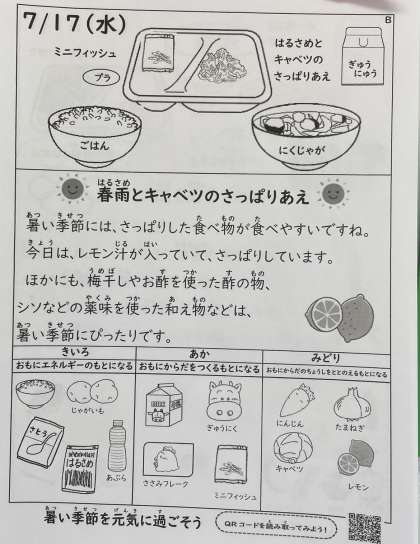 7/17(水)
B
ミニフィッシュ
プラ
はるさめと
キャベツの
さっぱりあえ
ぎゅう
にゅう
ごはん
にくじゃが
春雨とキャベツのさっぱりあえ
暑い季節には、さっぱりした食べ物が食べやすいですね。
今日は、レモン汁が入っていて、さっぱりしています。
ほかにも、梅干しやお酢を使った酢の物、
シソなどの薬味を使った和え物などは、
暑い季節にぴったりです。
きいろ
おもにエネルギーのもとになる
あか
おもにからだをつくるもとになる
みどり
おもにからだのちょうしをととのえるもとになる
じゃがいも
さとう
はるさめ
あぶら
ぎゅうにく
ささみフレーク
ミニフィッシュ
にんじん
たまねぎ
キャベツ
レモン
暑い季節を元気に過ごそう
QRコードを読み取ってみよう!